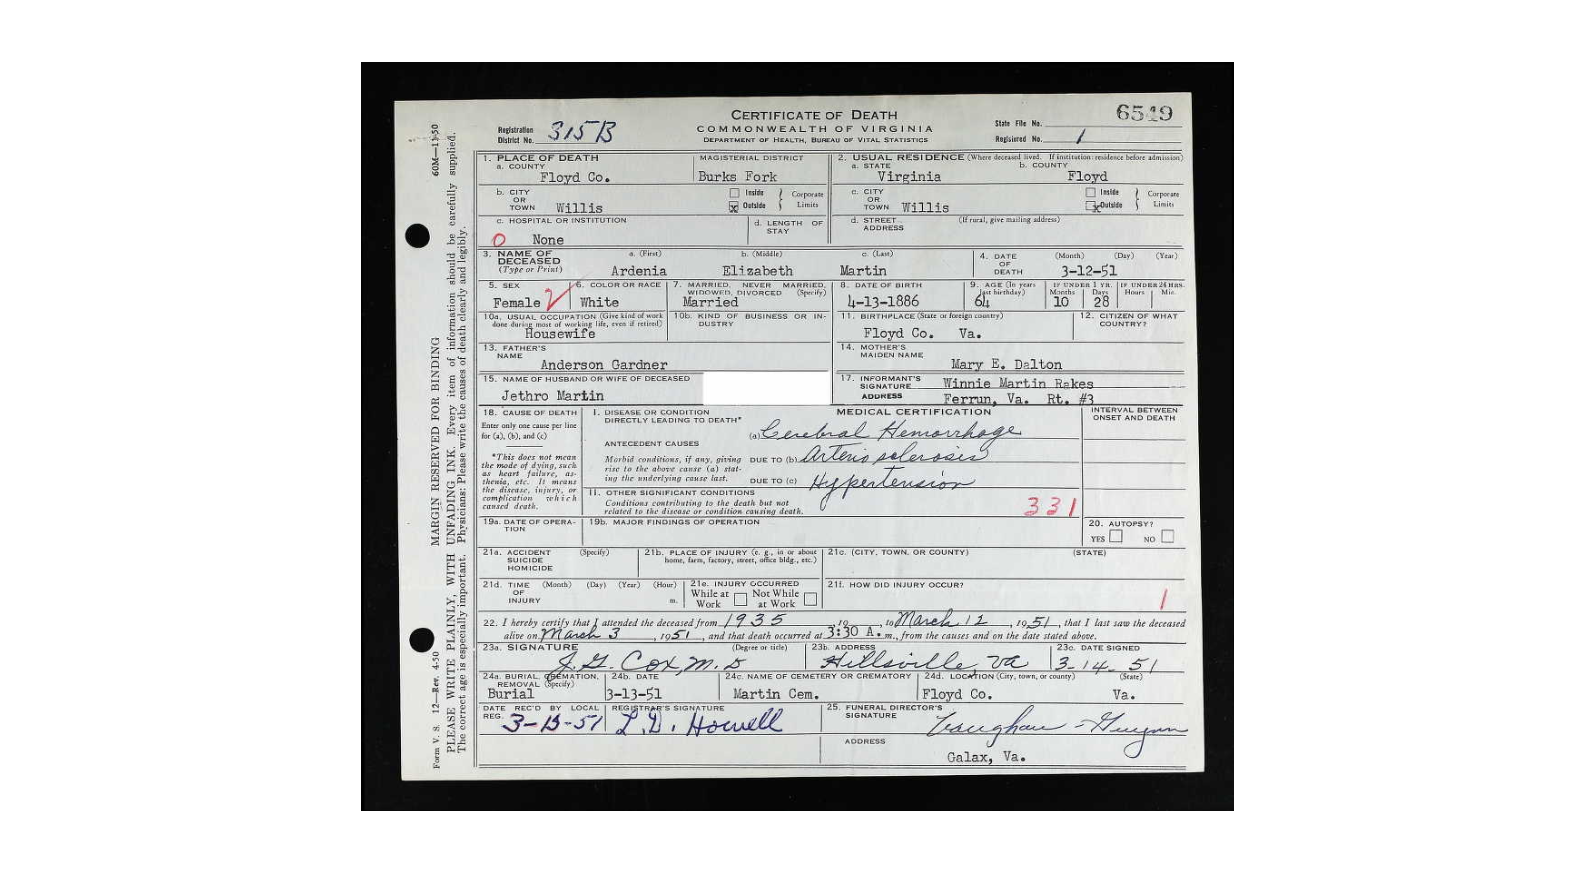 CERTIFICATE OF DEATH
COMMONWEALTH OF VIRGINIA
DEPARTMENT OF HEALTH, BUREAU OF VITAL STATISTICS
Registration District No. 315B
State File No. 6549
Registered No. 1
1. PLACE OF DEATH
a. COUNTY
Floyd Co.
MAGISTERIAL DISTRICT
Burks Fork
2. USUAL RESIDENCE (Where deceased lived. If institution: residence before admission)
a. STATE
Virginia
b. COUNTY
Floyd
b. CITY OR TOWN Willis
Inside
x Outside
Corporate Limits
c. CITY OR TOWN Willis
Inside
x Outside
Corporate Limits
c. HOSPITAL OR INSTITUTION
0 None
d. LENGTH OF STAY
d. STREET ADDRESS
(If rural, give mailing address)
3. NAME OF DECEASED
(Type or Print)
a. (First)
Ardenia
b. (Middle)
Elizabeth
c. (Last)
Martin
4. DATE OF DEATH
(Month) (Day) (Year)
3-12-51
5. SEX
Female
6. COLOR OR RACE
White
7. MARRIED, NEVER MARRIED, WIDOWED, DIVORCED (Specify)
Married
8. DATE OF BIRTH
4-13-1886
9. AGE (In years last birthday)
64
IF UNDER 1 YR.
Months Days
10 28
IF UNDER 24 HRS.
Hours Min.
10a. USUAL OCCUPATION (Give kind of work done during most of working life, even if retired)
Housewife
10b. KIND OF BUSINESS OR INDUSTRY
11. BIRTHPLACE (State or foreign country)
Floyd Co. Va.
12. CITIZEN OF WHAT COUNTRY?
13. FATHER'S NAME
Anderson Gardner
14. MOTHER'S MAIDEN NAME
Mary E. Dalton
15. NAME OF HUSBAND OR WIFE OF DECEASED
Jethro Martin
17. INFORMANT'S SIGNATURE Winnie Martin Rakes
ADDRESS Ferrun, Va. Rt. #3
18. CAUSE OF DEATH
Enter only one cause per line for (a), (b), and (c)
*This does not mean the mode of dying, such as heart failure, asthenia, etc. It means the disease, injury, or complication which caused death.
MEDICAL CERTIFICATION
INTERVAL BETWEEN ONSET AND DEATH
I. DISEASE OR CONDITION DIRECTLY LEADING TO DEATH*
(a) Cerebral Hemorrhage
ANTECEDENT CAUSES
Morbid conditions, if any, giving rise to the above cause (a) stating the underlying cause last.
DUE TO (b) Arterio sclerosis
DUE TO (c) Hypertension
II. OTHER SIGNIFICANT CONDITIONS
Conditions contributing to the death but not related to the disease or condition causing death.
331
19a. DATE OF OPERATION
19b. MAJOR FINDINGS OF OPERATION
20. AUTOPSY?
YES NO
21a. ACCIDENT SUICIDE HOMICIDE
(Specify)
21b. PLACE OF INJURY (e. g., in or about home, farm, factory, street, office bldg., etc.)
21c. (CITY, TOWN, OR COUNTY) (STATE)
21d. TIME OF INJURY
(Month) (Day) (Year) (Hour)
m.
21e. INJURY OCCURRED
While at Work
Not While at Work
21f. HOW DID INJURY OCCUR?
1
22. I hereby certify that I attended the deceased from 1935, 19 , to March 12, 1951, that I last saw the deceased
alive on March 3, 1951, and that death occurred at 3:30 A.m., from the causes and on the date stated above.
23a. SIGNATURE (Degree or title)
J. G. Cox, M. D
23b. ADDRESS
Hillsville, Va
23c. DATE SIGNED
3-14-51
24a. BURIAL, CREMATION, REMOVAL (Specify)
Burial
24b. DATE
3-13-51
24c. NAME OF CEMETERY OR CREMATORY
Martin Cem.
24d. LOCATION (City, town, or county) (State)
Floyd Co. Va.
DATE REC'D BY LOCAL REG. 3-13-51
REGISTRAR'S SIGNATURE
L. D. Howell
25. FUNERAL DIRECTOR'S SIGNATURE Vaughan-Guynn
ADDRESS
Galax, Va.
60M—11-50
MARGIN RESERVED FOR BINDING
Form V. S. 12—Rev. 4-50
PLEASE WRITE PLAINLY, WITH UNFADING INK. Every item of information should be carefully supplied.
The correct age is especially important. Physicians: Please write the causes of death clearly and legibly.